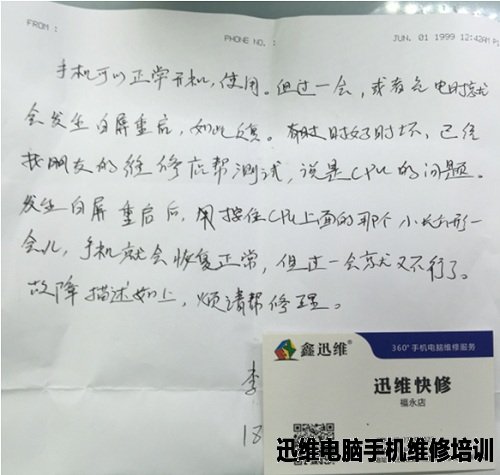 FROM :
PHONE NO. :
JUN. 01 1999 12:42AM P1
手机可以正常开机,使用。但过一会,或者充电时就
会发生白屏重启,如此反复。有时时好时坏,已经
找朋友的维修店帮测试,说是CPU的问题。
发生白屏重启后,用指住CPU上面的那个小长方形一
会儿,手机就会恢复正常,但过一会就又不行了。
故障描述如上,烦请帮修理。
李
18
鑫迅维
360°手机电脑维修服务
迅维快修
福永店
迅维电脑手机维修培训